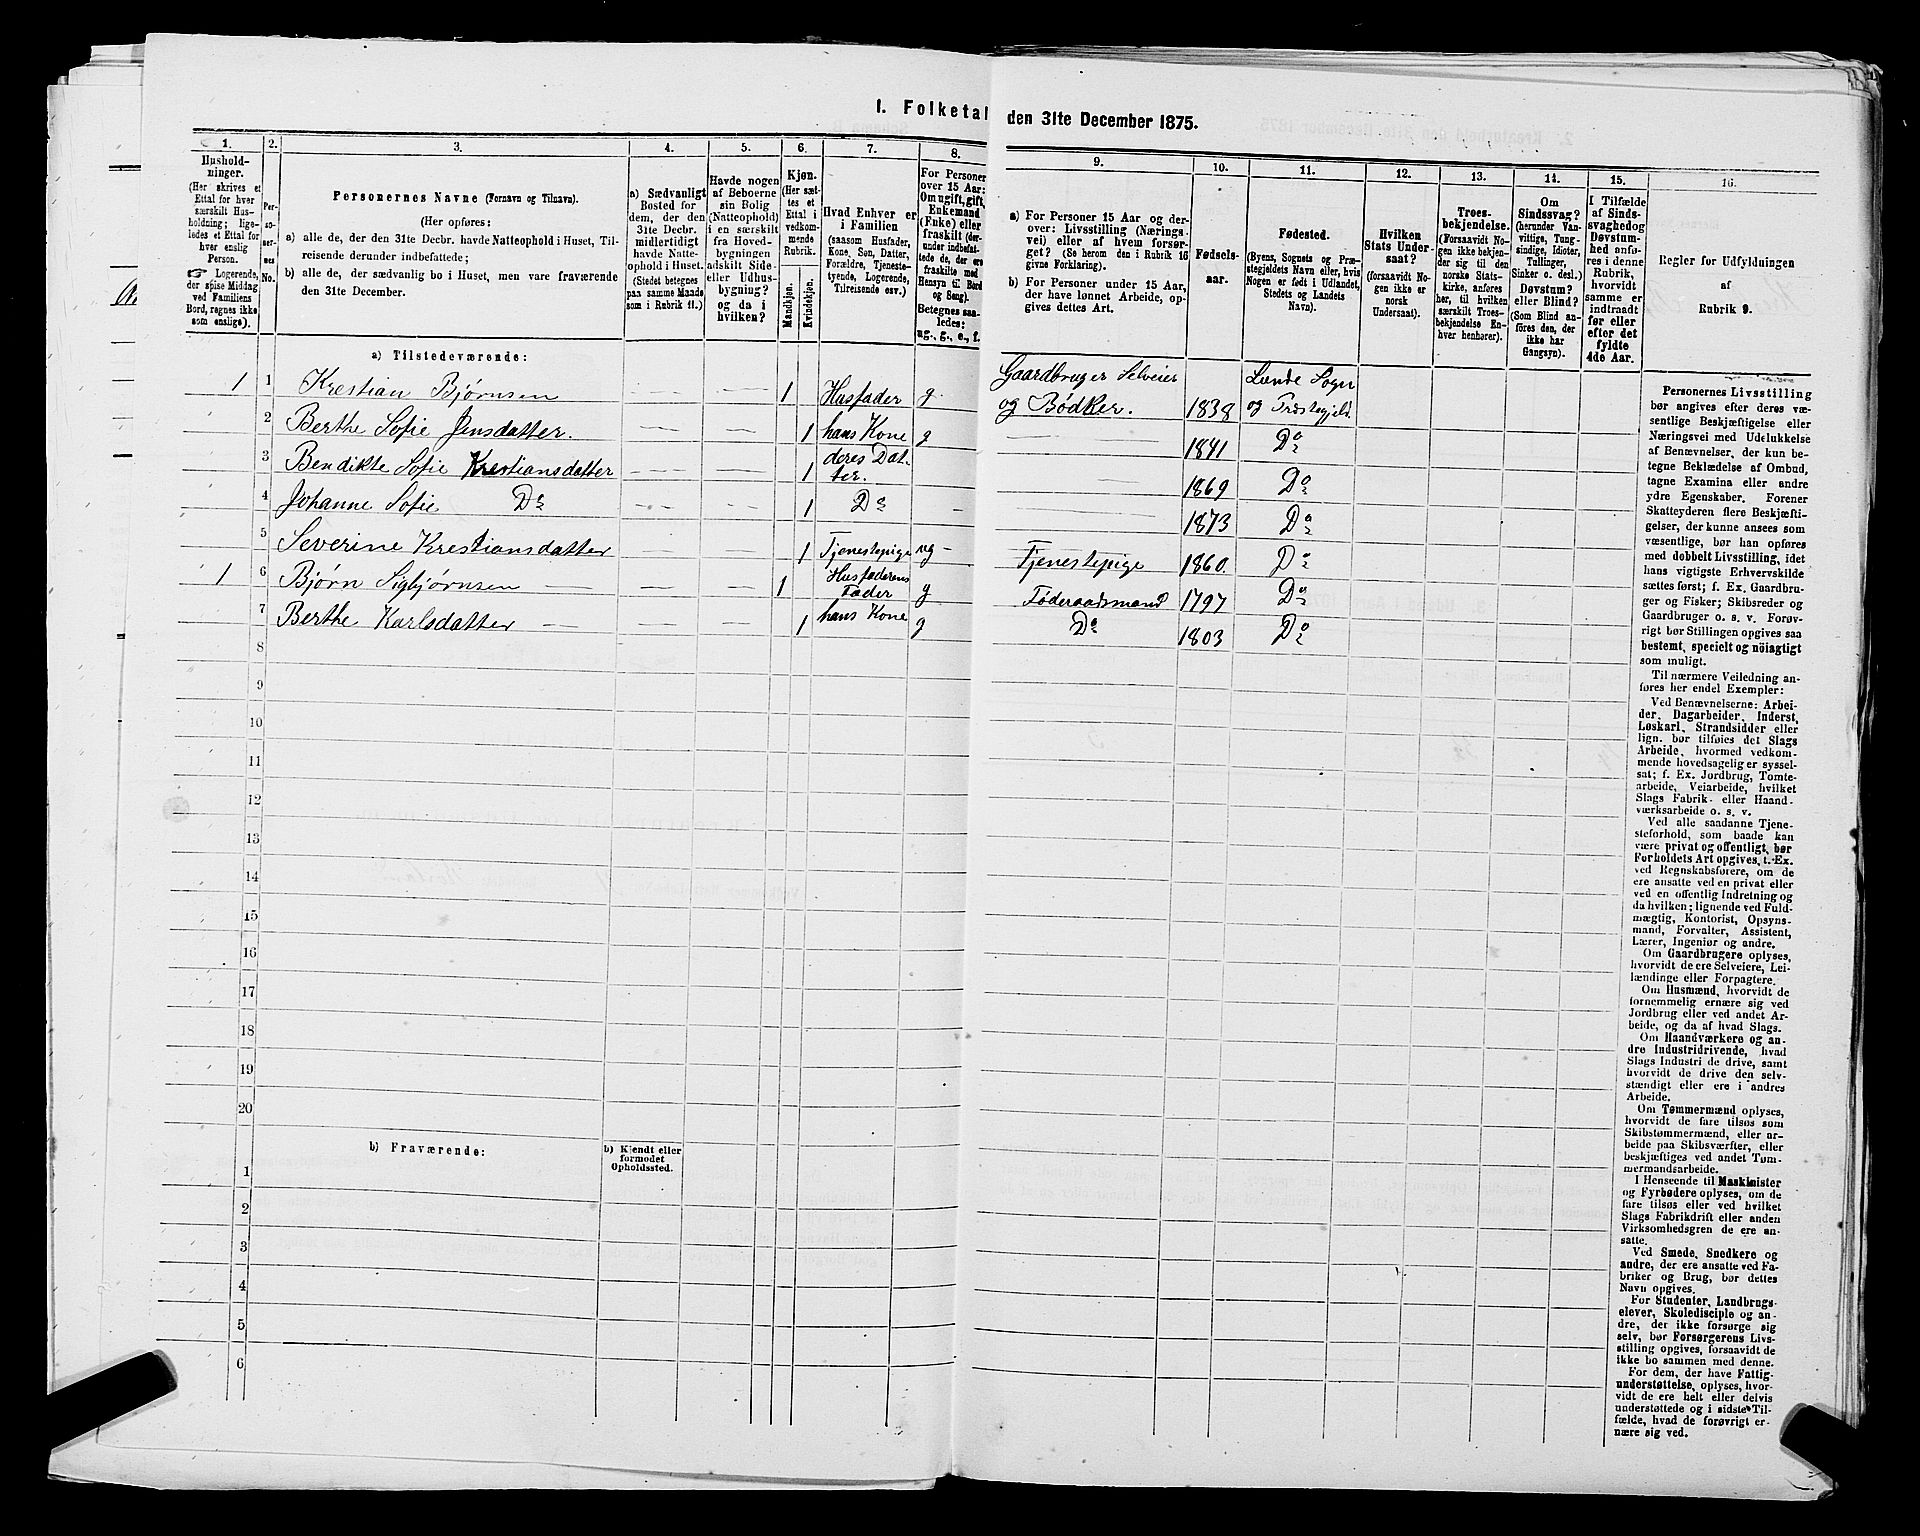 I. Folketal den 31te December 1875.
1. 2. 3. 4. 5. 6. 7. 8. 9. 10. 11. 12. 13. 14. 15. 16.
Hushold-
ninger.
(Her skrives et
Ettal for hver
særskilt Hus-
holdning; lige-
ledes et Ettal for
hver enslig
Person.
☞ Logerende,
der spise Middag
ved Familiens
Bord, regnes ikke
som enslige).
Per-
so-
ner-
nes
No.
Personernes Navne (Fornavn og Tilnavn).
(Her opføres:
a) alle de, der den 31te Decbr. havde Natteophold i Huset, Til-
reisende derunder indbefattede;
b) alle de, der sædvanlig bo i Huset, men vare fraværende
den 31te December.
a) Sædvanligt
Bosted for
dem, der den
31te Decbr.
midlertidigt
havde Natte-
ophold i Huset.
(Stedet betegnes
paa samme Maade
som i Rubrik 11.)
Havde nogen
af Beboerne
sin Bolig
(Natteophold)
i en særskilt
fra Hoved-
bygningen
adskilt Side-
eller Udhus-
bygning?
og da i
hvilken?
Kjøn.
(Her sæt-
tes et
Ettal i
vedkom-
mende
Rubrik.
Mandkjøn.
Kvindekjøn.
Hvad Enhver er
i Familien
(saasom Husfader,
Kone, Søn, Datter,
Forældre, Tjeneste-
tyende, Logerende,
Tilreisende osv.)
For Personer
over 15 Aar:
Om ugift, gift,
Enkemand
(Enke) eller
fraskilt (der-
under indbefat-
tede de, der ere
fraskilte med
Hensyn til Bord
og Seng).
Betegnes saa-
ledes:
ug., g., e., f.
a) For Personer 15 Aar og der-
over: Livsstilling (Nærings-
vei) eller af hvem forsør-
get? (Se herom den i Rubrik 16
givne Forklaring).
b) For Personer under 15 Aar,
der have lønnet Arbeide, op-
gives dettes Art.
Fødsels-
aar.
Fødested.
(Byens, Sognets og Præ-
stegjeldets Navn eller, hvis
Nogen er født i Udlandet,
Stedets og Landets
Navn).
Hvilken
Stats Under-
saat?
(forsaavidt No-
gen ikke er
norsk
Undersaat).
Troes-
bekjendelse.
(Forsaavidt No-
gen ikke bekjen-
der sig til den
norske Stats-
kirke, anføres
her, til hvilken
særskilt Troes-
bekjendelse En-
hver henhører).
Om
Sindssvag?
(herunder Van-
vittige, Tung-
sindige, Idioter,
Tullinger,
Sinker o. desl.)
Døvstum?
eller Blind?
(Som Blind an-
føres den, der
ikke har
Gangsyn).
I Tilfælde
af Sinds-
svaghed og
Døvstum-
hed anfø-
res i denne
Rubrik,
hvorvidt
samme er
indtraadt
før eller
efter det
fyldte
4de Aar.
Regler for Udfyldningen
af
Rubrik 9.
a) Tilstedeværende:
1 1 Krestian Bjørnsen — — 1 Husfader g Gaardbruger Selveier og Bødker. 1838 Lunde Sogn og Præstegjeld
2 Berthe Sofie Jensdatter. — — 1 hans Kone g 1841 Do
3 Bendikte Sofie Krestiansdatter — — 1 deres Datter. 1869 Do
4 Johanne Sofie Do — — 1 Do — 1873 Do
5 Severine Krestiansdatter — — 1 Tjenestepige ug Tjenestepige 1860 Do
1 6 Bjørn Sigbjørnsen — — — 1 Husfaderens Fader g Føderaadsmand 1797 Do
7 Berthe Karlsdatter — — — 1 hans Kone g Do 1803 Do
8
9
10
11
12
13
14
15
16
17
18
19
20
b) Fraværende:
b) Kjendt eller
formodet
Opholdssted.
1
2
3
4
5
6
Personernes Livsstilling
bør angives efter deres væ-
sentlige Beskjæftigelse eller
Næringsvei med Udelukkelse
af Benævnelser, der kun be-
tegne Beklædelse af Ombud,
tagne Examina eller andre
ydre Egenskaber. Forener
Skatteyderen flere Beskjæfti-
gelser, der kunne ansees som
væsentlige, bør han opføres
med dobbelt Livsstilling, idet
hans vigtigste Erhvervskilde
sættes først; f. Ex. Gaardbru-
ger og Fisker; Skibsreder og
Gaardbruger o. s. v. Forøv-
rigt bør Stillingen opgives saa
bestemt, specielt og nöiagtigt
som muligt.
Til nærmere Veiledning an-
føres her endel Exempler:
Ved Benævnelserne: Arbei-
der, Dagarbeider, Inderst,
Løskarl, Strandsidder eller
lign. bør tilføies det Slags
Arbeide, hvormed vedkom-
mende hovedsagelig er syssel-
sat; f. Ex. Jordbrug, Tomte-
arbeide, Veiarbeide, hvilket
Slags Fabrik- eller Haand-
værksarbeide o. s. v.
Ved alle saadanne Tjene-
steforhold, som baade kan
være privat og offentligt, bør
Forholdets Art opgives, t. Ex.
ved Regnskabsførere, om de
ere ansatte ved en privat eller
ved en offentlig Indretning og
da hvilken; lignende ved Fuld-
mægtig, Kontorist, Opsyns-
mand, Forvalter, Assistent,
Lærer, Ingeniør og andre.
Om Gaardbrugere oplyses,
hvorvidt de ere Selveiere, Lei-
lændinge eller Forpagtere.
Om Husmænd, hvorvidt de
fornemmelig ernære sig ved
Jordbrug eller ved andet Ar-
beide, og da af hvad Slags.
Om Haandværkere og an-
dre Industridrivende, hvad
Slags Industri de drive, samt
hvorvidt de drive den selv-
stændigt eller ere i andres
Arbeide.
Om Tømmermænd oplyses,
hvorvidt de fare tilsøs som
Skibstømmermænd, eller ar-
beide paa Skibsværfter, eller
beskjæftiges ved andet Tøm-
mermandsarbeide.
I Henseende til Maskinister
og Fyrbødere oplyses, om de
fare tilsøs eller ved hvilket
Slags Fabrikdrift eller anden
Virksomhedsgren de ere an-
satte.
Ved Smede, Snedkere og
andre, der ere ansatte ved Fa-
briker og Brug, bør dettes
Navn opgives.
For Studenter, Landbrugs-
elever, Skoledisciple og an-
dre, der ikke forsørge sig
selv, bør Forsørgerens Livs-
stilling opgives, forsaavidt de
ikke bo sammen med denne.
For dem, der have Fattig-
understøttelse, oplyses, hvor-
vidt de ere helt eller delvis
understøttede og i sidste Til-
fælde, hvad de forøvrigt er-
nære sig ved.